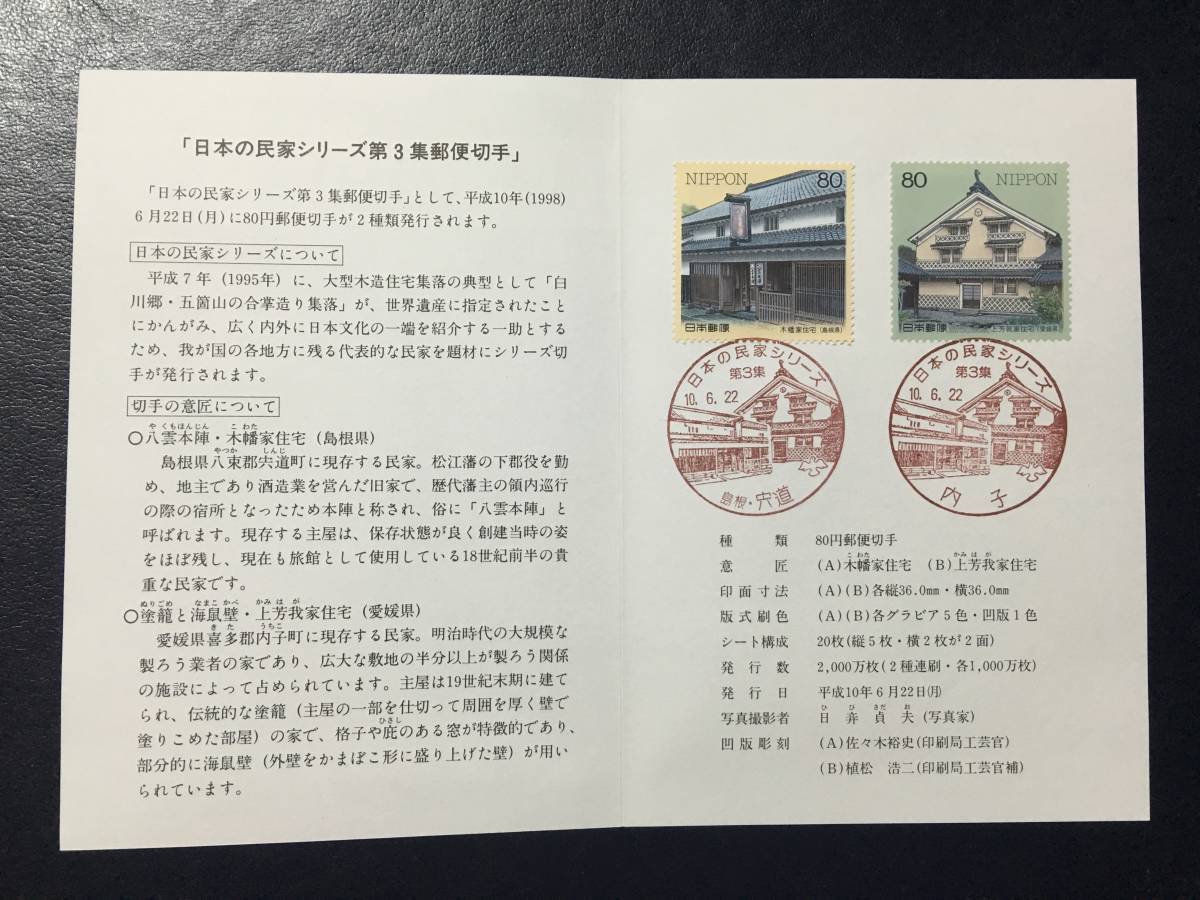 「日本の民家シリーズ第3集郵便切手」
「日本の民家シリーズ第3集郵便切手」として、平成10年(1998)
6月22日(月)に80円郵便切手が2種類発行されます。
日本の民家シリーズについて
平成7年(1995年)に、大型木造住宅集落の典型として「白
川郷・五箇山の合掌造り集落」が、世界遺産に指定されたこと
にかんがみ、広く内外に日本文化の一端を紹介する一助とする
ため、我が国の各地方に残る代表的な民家を題材にシリーズ切
手が発行されます。
切手の意匠について
やくもほんじん こわた
○八雲本陣・木幡家住宅(島根県)
やつか しんじ
島根県八束郡宍道町に現存する民家。松江藩の下郡役を勤
め、地主であり酒造業を営んだ旧家で、歴代藩主の領内巡行
の際の宿所となったため本陣と称され、俗に「八雲本陣」と
呼ばれます。現存する主屋は、保存状態が良く創建当時の姿
をほぼ残し、現在も旅館として使用している18世紀前半の貴
重な民家です。
ぬりごめ なまこかべ かみはが
○塗籠と海鼠壁・上芳我家住宅(愛媛県)
きた うちこ
愛媛県喜多郡内子町に現存する民家。明治時代の大規模な
製ろう業者の家であり、広大な敷地の半分以上が製ろう関係
の施設によって占められています。主屋は19世紀末期に建て
られ、伝統的な塗籠(主屋の一部を仕切って周囲を厚く壁で
ひさし
塗りこめた部屋)の家で、格子や庇のある窓が特徴的であり、
部分的に海鼠壁(外壁をかまぼこ形に盛り上げた壁)が用い
られています。
NIPPON 80
日本郵便 木幡家住宅(島根県)
80 NIPPON
日本郵便 上芳我家住宅(愛媛県)
日本の民家シリーズ
第3集
10.6.22
島根・宍道
日本の民家シリーズ
第3集
10.6.22
内子
種類 80円郵便切手
こわた かみはが
意匠 (A)木幡家住宅 (B)上芳我家住宅
印面寸法 (A)(B)各縦36.0mm・横36.0mm
版式刷色 (A)(B)各グラビア5色・凹版1色
シート構成 20枚(縦5枚・横2枚が2面)
発行数 2,000万枚(2種連刷・各1,000万枚)
発行日 平成10年6月22日(月)
ひび さだお
写真撮影者 日竎貞夫(写真家)
凹版彫刻 (A)佐々木裕史(印刷局工芸官)
(B)植松 浩二(印刷局工芸官補)